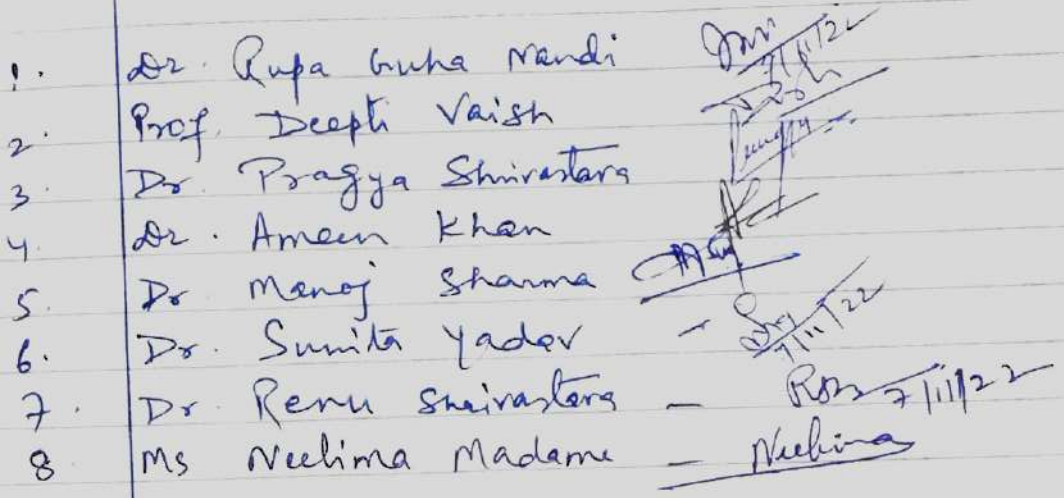 1. Dr. Rupa Guha Nandi 7/11/22
2. Prof. Deepti Vaish
3 Dr. Pragya Shrivastava
4. Dr. Ameen Khan
5. Dr Manoj Sharma
6. Dr. Sunita Yadav - 7/11/22
7. Dr. Renu Shrivastava - 7/11/22
8 Ms Neelima Madame - Neelima